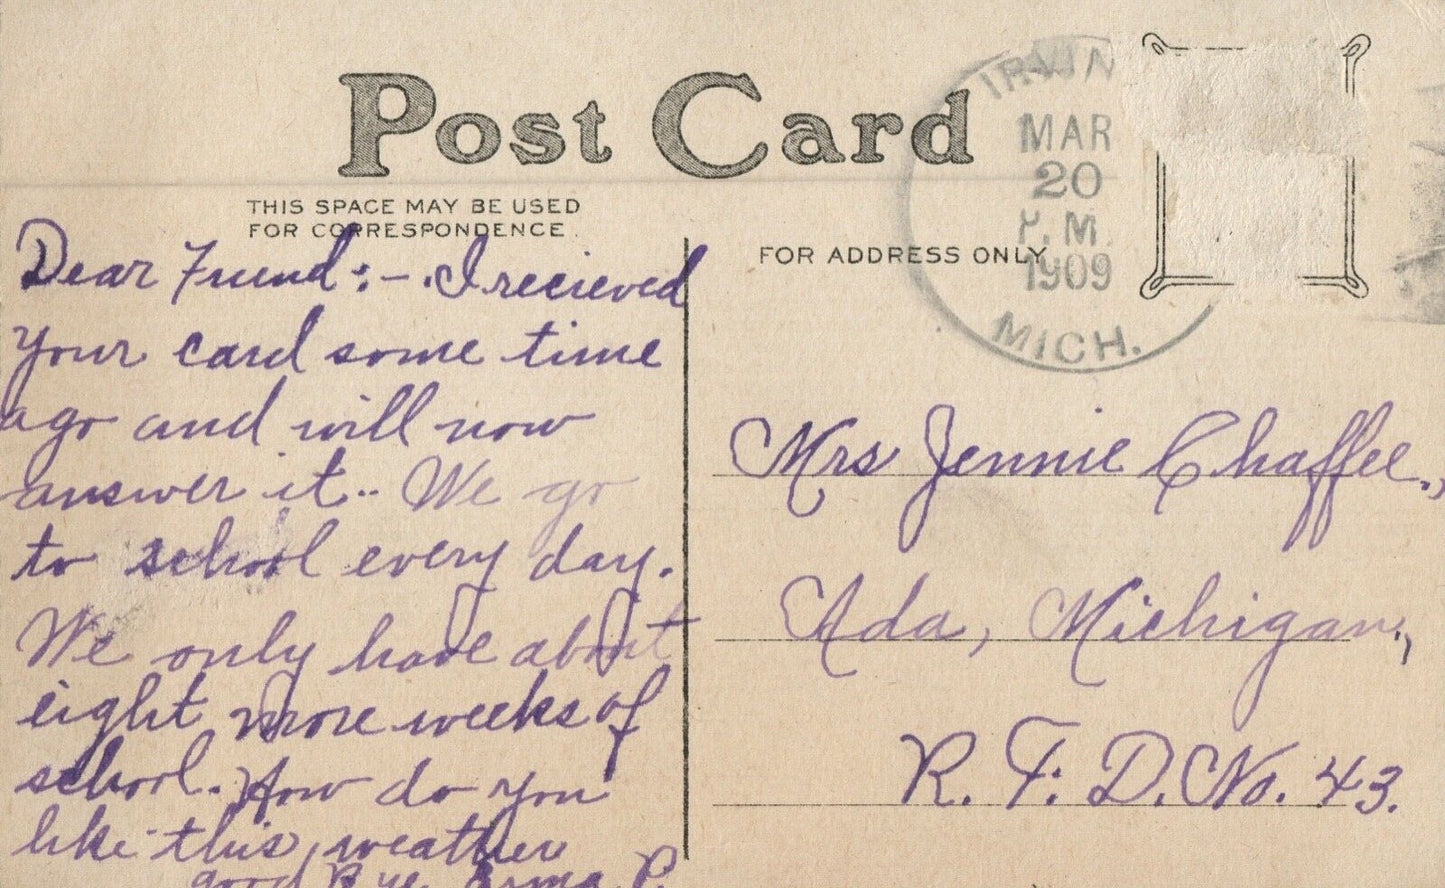 Post Card
THIS SPACE MAY BE USED
FOR CORRESPONDENCE.
FOR ADDRESS ONLY
IRVIN
MAR
20
P.M.
1909
MICH.
Dear Friend:-. I recieved
your card some time
ago and will now
answer it.. We go
to school every day.
We only have about
eight more weeks of
school. How do you
like this weather
good Bye. P.
Mrs Jennie Chaffee.,
Ada, Michigan.,
R. F. D. No. 43.